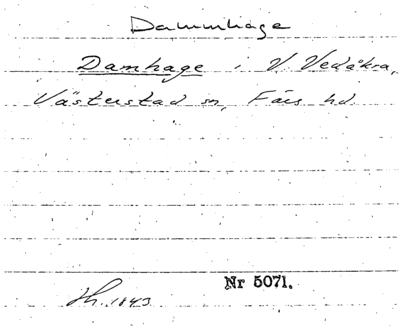 Dammhage
Damhage i V. Vedåkra,
Västerstad sn, Färs hd.
Nr 5071.
1843